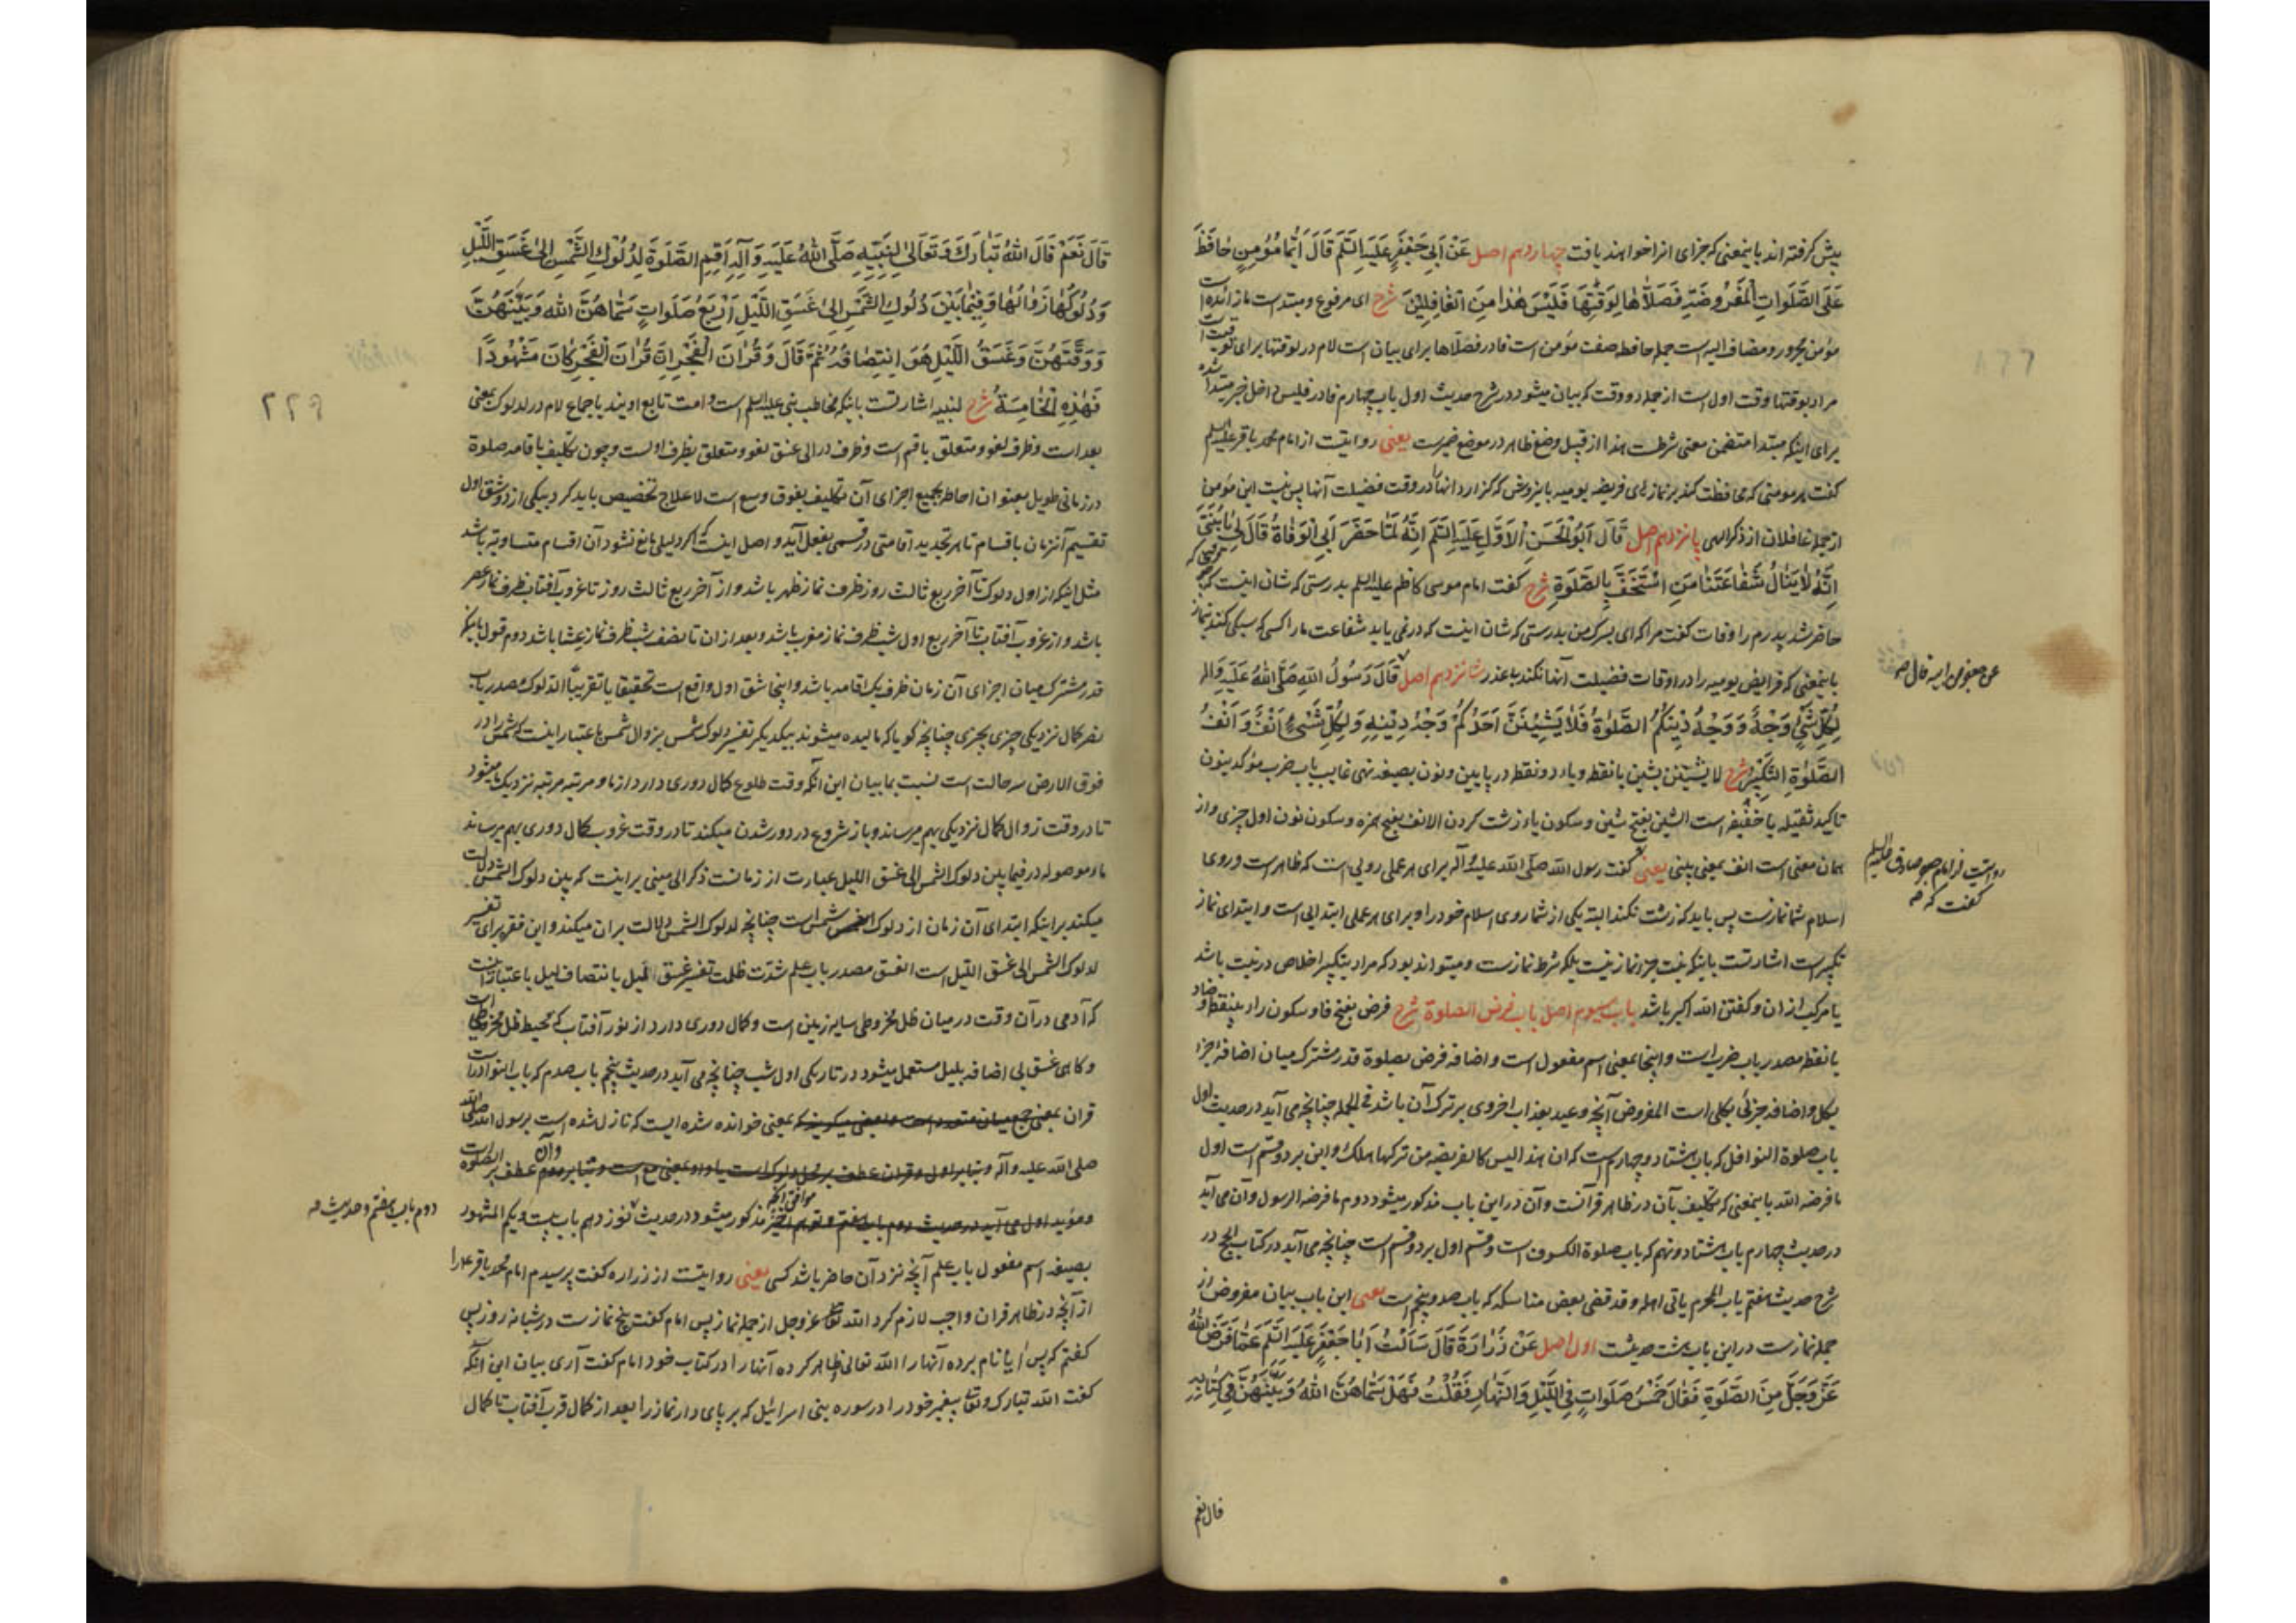 پیش گرفته اند باینمعنی که جزای انرا خواهند یافت چهاردهم اصل عَنْ أَبِي جَعْفَرٍ عَلَيْهِ السَّلَمُ قَالَ أَيُّمَا مُؤْمِنٍ حَافَظَ
عَلَى الصَّلَوَاتِ الْمَفْرُوضَةِ فَصَلَّاهَا لِوَقْتِهَا فَلَيْسَ هٰذَا مِنَ الْغَافِلِينَ شرح ای مرفوع ومبتداست ما زائده است
مؤمن مجرور ومضاف الیه است جمله حافظ صفت مؤمن است فا در فصلّاها برای بیان است لام در لوقتها برای توقیت است
مراد بوقتها وقت اول است از جمله دو وقت که بیان میشود در شرح حدیث اول باب چهارم فا در فلیس داخل خبر مبتدا شده
برای اینکه مبتدا متضمن معنی شرطست هذا از قبیل وضع ظاهر در موضع ضمیرست یعنی روایتست از امام محمد باقر علیه السلم
گفت هر مومنی که محافظت کند بر نمازهای فریضه یومیه باینروش که گزارد آنها را در وقت فضیلت آنها پس نیست این مؤمن
از جمله غافلان از ذکر الهی پانزدهم اصل قَالَ أَبُو الْحَسَنِ الْأَوَّلِ عَلَيْهِ السَّلَمُ إِنَّهُ لَمَّا حَضَرَ أَبِي الْوَفَاةُ قَالَ لِي يَا بُنَيَّ
إِنَّهُ لَا يَنَالُ شَفَاعَتَنَا مَنِ اسْتَخَفَّ بِالصَّلَوةِ شرح گفت امام موسی کاظم علیه السلم بدرستی که شان اینست که
حاضر شد پدرم را وفات گفت مرا که ای پسرک من بدرستی که شان اینست که درنمی یابد شفاعت ما را کسی که سبکی کند بنماز
باینمعنی که فرایض یومیه را در اوقات فضیلت آنها نکند بی عذر شانزدهم اصل قَالَ رَسُولُ اللهِ صَلَّى اللهُ عَلَيْهِ وَآلِهِ
عن جعفر عن ابیه قال صح
لِكُلِّ شَيْءٍ وَجْهٌ وَوَجْهُ دِينِكُمُ الصَّلَوةُ فَلَا يَشِينَنَّ أَحَدُكُمْ وَجْهَ دِينِهِ وَلِكُلِّ شَيْءٍ أَنْفٌ وَأَنْفُ
الصَّلَوةِ التَّكْبِيرُ شرح لا یشینن بشین بانقطه ویاء دو نقطه در پایین ونون بصیغه نهی غایب باب ضرب مؤکد بنون
تاکید ثقیله یا خفیفه است الشین بفتح شین وسکون یاء زشت کردن الانف بفتح همزه وسکون نون اول چیزی واز
همان معنی است انف بمعنی بینی یعنی گفت رسول الله صلّی الله علیه وآله برای هر عملی رویی است که ظاهر است وروی
روایتست از امام جعفر صادق علیه السلم
گفت که صح
اسلام شما نمازست پس باید که زشت نکند البته یکی از شما روی اسلام خود را وبرای هر عملی ابتدایی است وابتدای نماز
تکبیرست اشارتست باینکه نیت جزء نماز نیست بلکه شرط نمازست ومیتواند بود که مراد بتکبیر اخلاص در نیت باشد
یا مرکب از ان وگفتن الله اکبر باشد باب سیوم اصل باب فرض الصلوة شرح فرض بفتح فا وسکون راء بینقطه وضاد
بانقطه مصدر باب ضرب است واینجا بمعنی اسم مفعول است واضافه فرض بصلوة قدر مشترک میان اضافهٔ جزء
بکل واضافه جزئی بکلی است المفروض آنچه وعید بعذاب اخروی بر ترک آن باشد فی الجمله چنانچه می آید در حدیث اول
باب صلوة النوافل که باب هشتاد وچهارم است که ان هذا لیس کالفریضه من ترکها هلک واین بر دو قسم است اول
ما فرضه الله باینمعنی که تکلیف بآن در ظاهر قرآنست وآن در این باب مذکور میشود دوم ما فرضه الرسول وآن می آید
در حدیث چهارم باب هشتاد ونهم که باب صلوة الکسوف است وقسم اول بر دو قسم است چنانچه می آید در کتاب الحج در
شرح حدیث هفتم باب المحرم یاتی اهله وقد قضی بعض مناسکه که باب صد وپنجم است یعنی این باب بیان مفروض از
جمله نمازست در این باب هشت حدیثست اول اصل عَنْ زُرَارَةَ قَالَ سَأَلْتُ أَبَا جَعْفَرٍ عَلَيْهِ السَّلَمُ عَمَّا فَرَضَ اللهُ
عَزَّ وَجَلَّ مِنَ الصَّلَوةِ فَقَالَ خَمْسُ صَلَوَاتٍ فِي اللَّيْلِ وَالنَّهَارِ فَقُلْتُ فَهَلْ سَمَّاهُنَّ اللهُ وَبَيَّنَهُنَّ فِي كِتَابِهِ
قال نعم
قَالَ نَعَمْ قَالَ اللهُ تَبَارَكَ وَتَعَالَى لِنَبِيِّهِ صَلَّى اللهُ عَلَيْهِ وَآلِهِ أَقِمِ الصَّلَوةَ لِدُلُوكِ الشَّمْسِ إِلَى غَسَقِ اللَّيْلِ
وَدُلُوكُهَا زَوَالُهَا وَفِيمَا بَيْنَ دُلُوكِ الشَّمْسِ إِلَى غَسَقِ اللَّيْلِ أَرْبَعُ صَلَوَاتٍ سَمَّاهُنَّ اللهُ وَبَيَّنَهُنَّ
وَوَقَّتَهُنَّ وَغَسَقُ اللَّيْلِ هُوَ انْتِصَافُهُ ثُمَّ قَالَ وَقُرْآنَ الْفَجْرِ إِنَّ قُرْآنَ الْفَجْرِ كَانَ مَشْهُودًا
۲۲۹
فَهٰذِهِ الْخَامِسَةُ شرح لنبیه اشارتست باینکه مخاطب نبی علیه السلم است وامت تابع اویند باجماع لام در لدلوک بمعنی
بعد است وظرف لغو ومتعلق باقم است وظرف در الی غسق لغو ومتعلق بظرف اولست وچون تکلیف باقامه صلوة
در زمانی طویل بعنوان احاطه بجمیع اجزای آن تکلیف بفوق وسع است لاعلاج تخصیص باید کرد بیکی از دو شق اول
تقسیم آنزمان باقسام تا هر تجدید اقامتی در قسمی بفعل آید واصل اینست که اگر دلیلی مانع نشود آن اقسام متساویه باشد
مثل اینکه از اول دلوک تا آخر ربع ثالث روز ظرف نماز ظهر باشد واز آخر ربع ثالث روز تا غروب آفتاب ظرف نماز عصر
باشد واز غروب آفتاب تا آخر ربع اول شب ظرف نماز مغرب باشد وبعد از ان تا نصف شب ظرف نماز عشا باشد دوم قول باینکه
قدر مشترک میان اجزای آن زمان ظرف یک اقامه باشد واینجا شق اول واقع است تحقیقا یا تقریبا الدلوک مصدر باب
نصر کمال نزدیکی چیزی بچیزی چنانچه گویا که مالیده میشوند بیکدیگر تفسیر دلوک شمس بزوال شمس باعتبار اینست که شمس را در
فوق الارض سه حالت است نسبت بما بیان این آنکه وقت طلوع کمال دوری دارد از ما ومرتبه مرتبه نزدیک ما میشود
تا در وقت زوال کمال نزدیکی بهم میرساند وباز شروع در دور شدن میکند تا در وقت غروب کمال دوری بهم میرساند
ما موصوله در فیما بین دلوک الشمس الی غسق اللیل عبارت از زمانست ذکر الی مبنی بر اینست که بین دلوک الشمس دلالت
میکند بر اینکه ابتدای آن زمان از دلوک شمس است چنانچه لدلوک الشمس دلالت بران میکند واین فقره برای تفسیر
لدلوک الشمس الی غسق اللیل است الغسق مصدر باب علم شدّت ظلمت تفسیر غسق اللیل بانتصاف لیل باعتبار آنست
که آدمی در آن وقت در میان ظل مخروطی سایه زمین است وکمال دوری دارد از نور آفتاب که محیط ظل مخروطی است
وگاهی غسق بی اضافه بلیل مستعمل میشود در تاریکی اول شب چنانچه می آید در حدیث پنجم باب صدم که باب النوادر است
قران بمعنی جمع میان متعدد است وبعضی میگویند که بمعنی خوانده شده ایست که نازل شده است برسول الله صلی الله
صلی الله علیه وآله وبنابر اول وقران عطف بر محل دلوک است یا واو بمعنی مع است وبنابر دوم عطف بر الصلوة است وآن
موافق آنچه
ومؤید اول می آید در حدیث دوم باب هفتم ونهم آنچه مذکور میشود در حدیث نوزدهم باب بیست ویکم المشهود
دوم باب هفتم وحدیث صح
بصیغه اسم مفعول باب علم آنچه نزد آن حاضر باشد کسی یعنی روایتست از زراره گفت پرسیدم امام محمد باقر ع را
از آنچه در ظاهر قران واجب لازم کرد الله تعالی عزوجل از جمله نماز پس امام گفت پنج نمازست در شبانه روز پس
گفتم که پس آیا نام برده آنها را الله تعالی وظاهر کرده آنها را در کتاب خود امام گفت آری بیان این آنکه
گفت الله تبارک وتعالی پیغمبر خود را در سوره بنی اسرائیل که بر پای دار نماز را بعد از کمال قرب آفتاب تا کمال